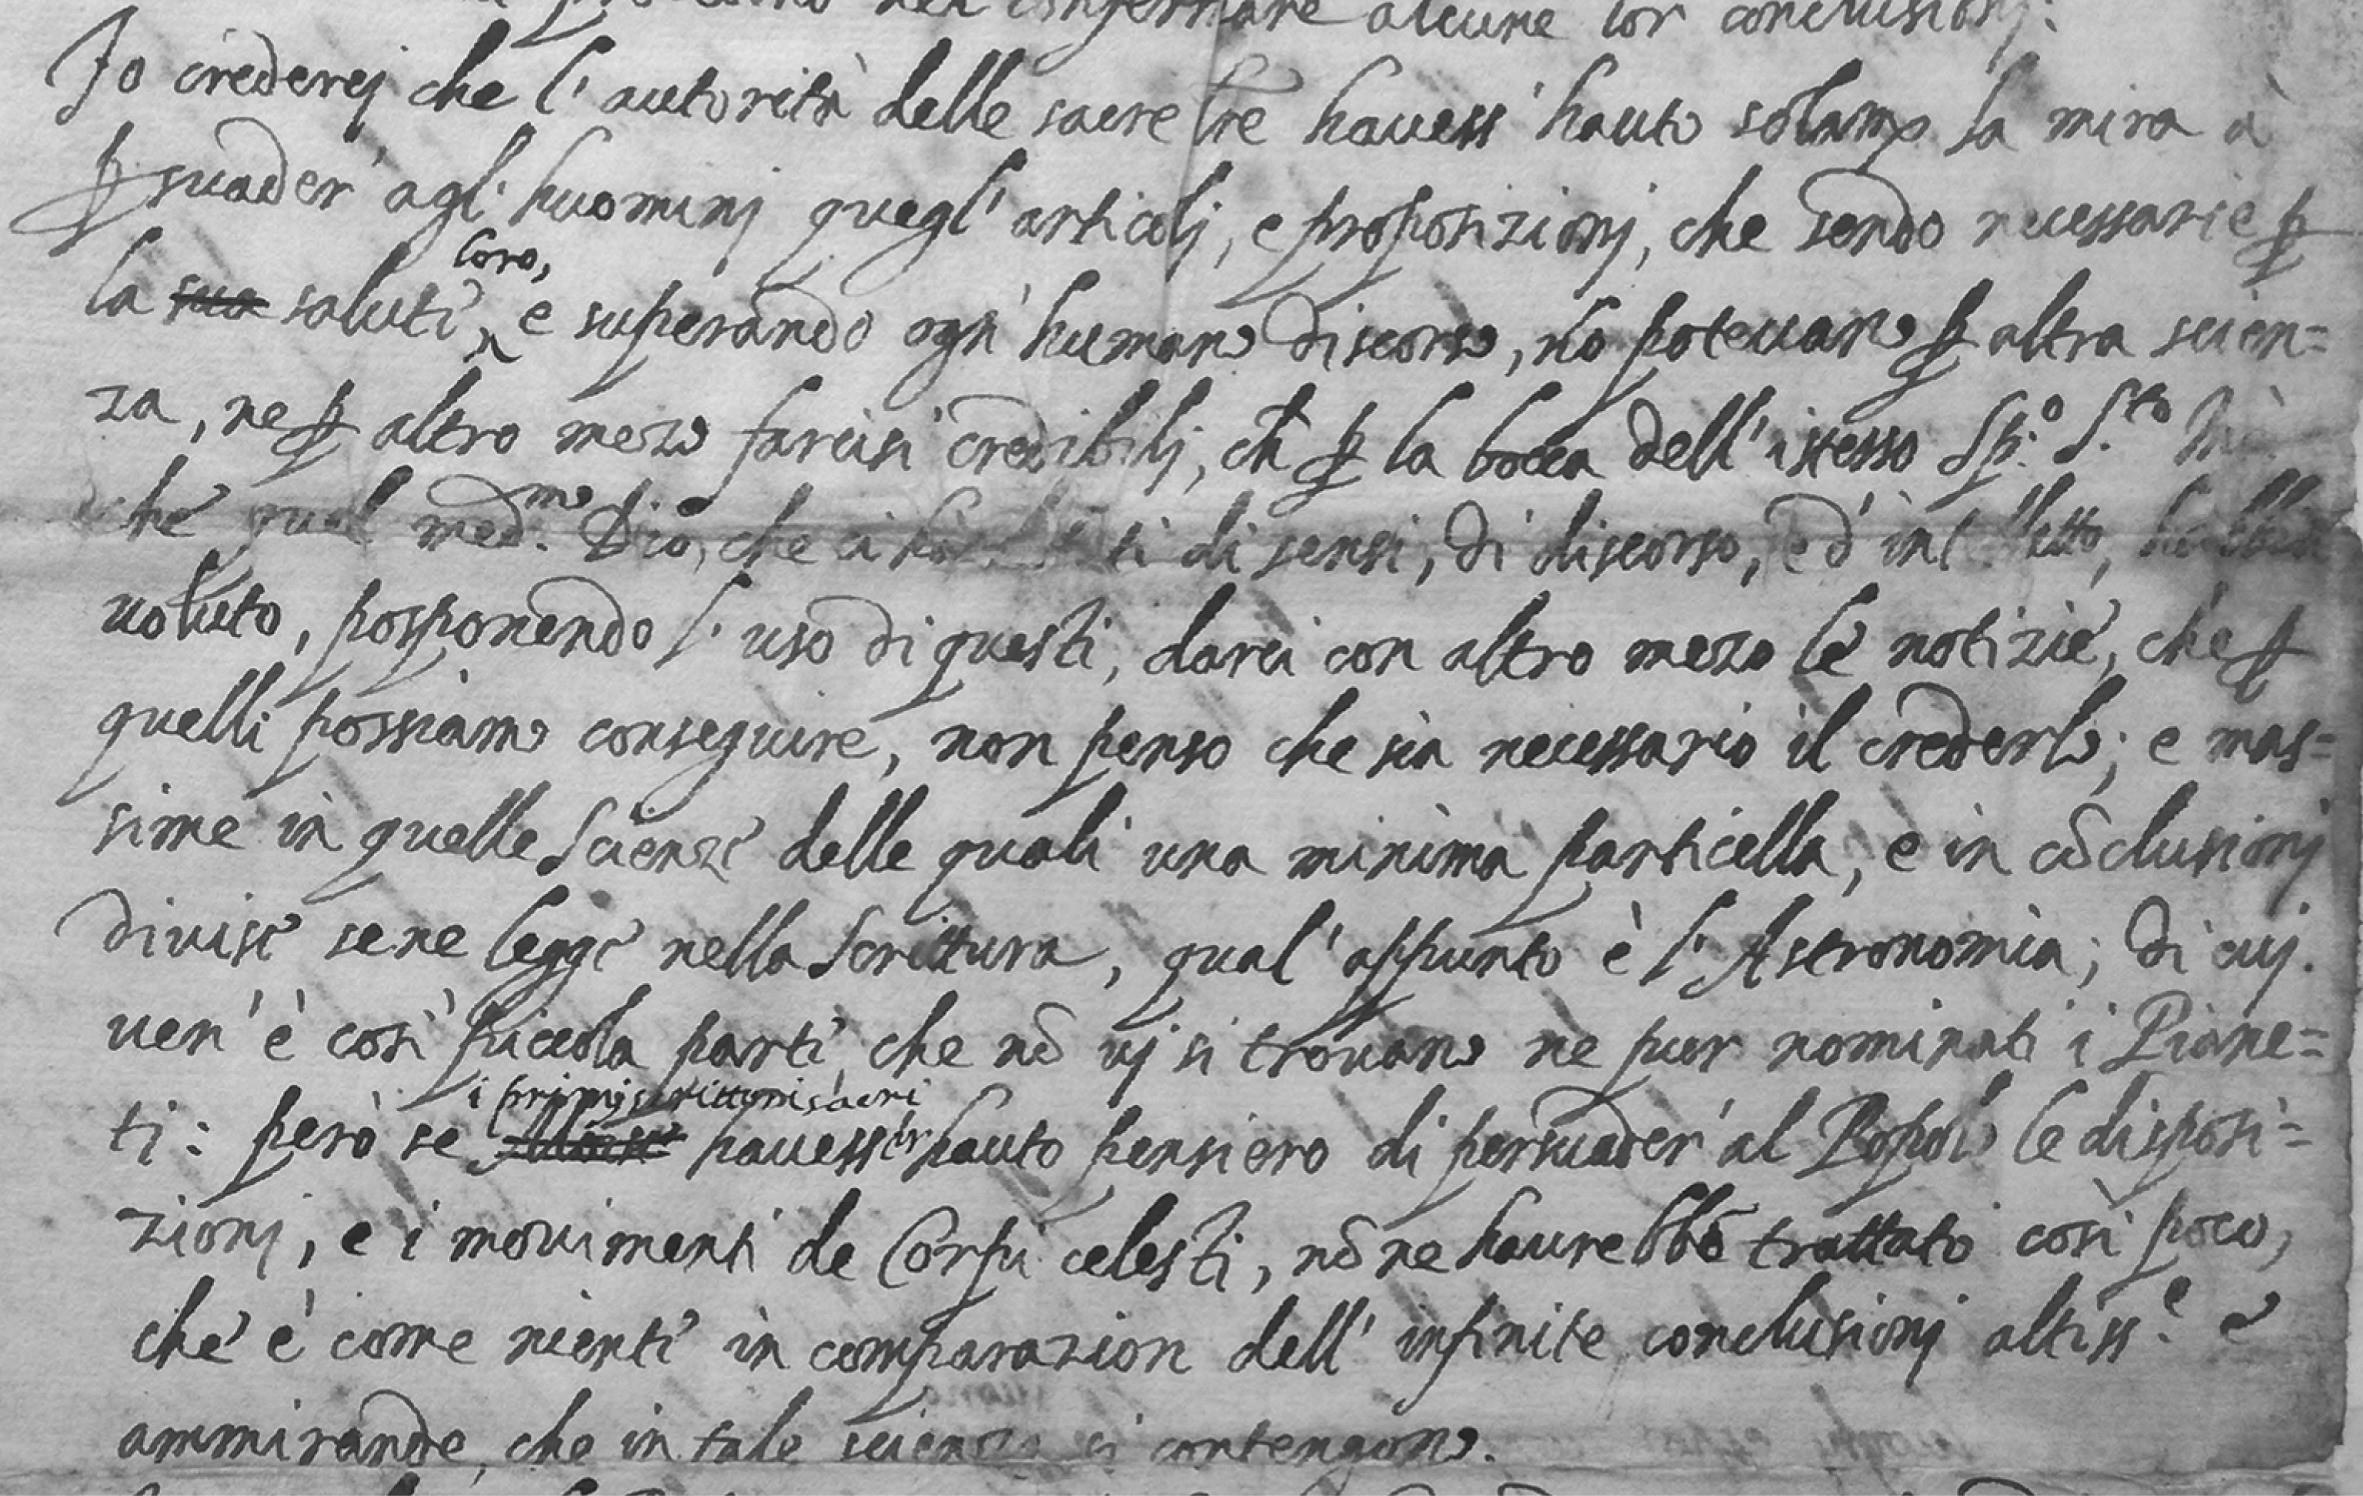 confermare alcune lor conclusionj:
Io crederej che l'autorità delle sacre lre havess' hauto solam.e la mira à
ꝑsuader' agl'huominj quegl'articolj, e proposizionj, che sendo necessarie ꝑ
la sua salute loro, e superando ogn' humano discorso, nō potevano ꝑ altra scien=
za, ne ꝑ altro mezo farcisi credibilj, ch̄ ꝑ la bocca dell'istesso Sp.o S.to Mà
che quel med.mo Dio, che ci hà ti di sensi, di discorso, ed' intelletto, habbia
voluto, posponendo l'uso di questi, darci con altro mezo le notizie, che ꝑ
quelli possiamo conseguire, non penso che sia necessario il crederlo; e mas=
sime in quelle Scienze delle quali una minima particella, e in cōclusionj
divise se ne legge nella Scrittura, qual'appunto è l'Astronomia; di cuj
ven'è così piccola parte, che nō vj si trovano ne pur nominati i Piane=
ti: però se i primj scrittori sacri havesser hauto pensiero di persuader' al Popolo le disposi=
zionj, e i movimenti de Corpi celesti, nō ne haurebbō trattato così poco,
che è come niente in comparazion dell'infinite conclusionj altiss.e e
ammirande, che in tale scienza si contengono.